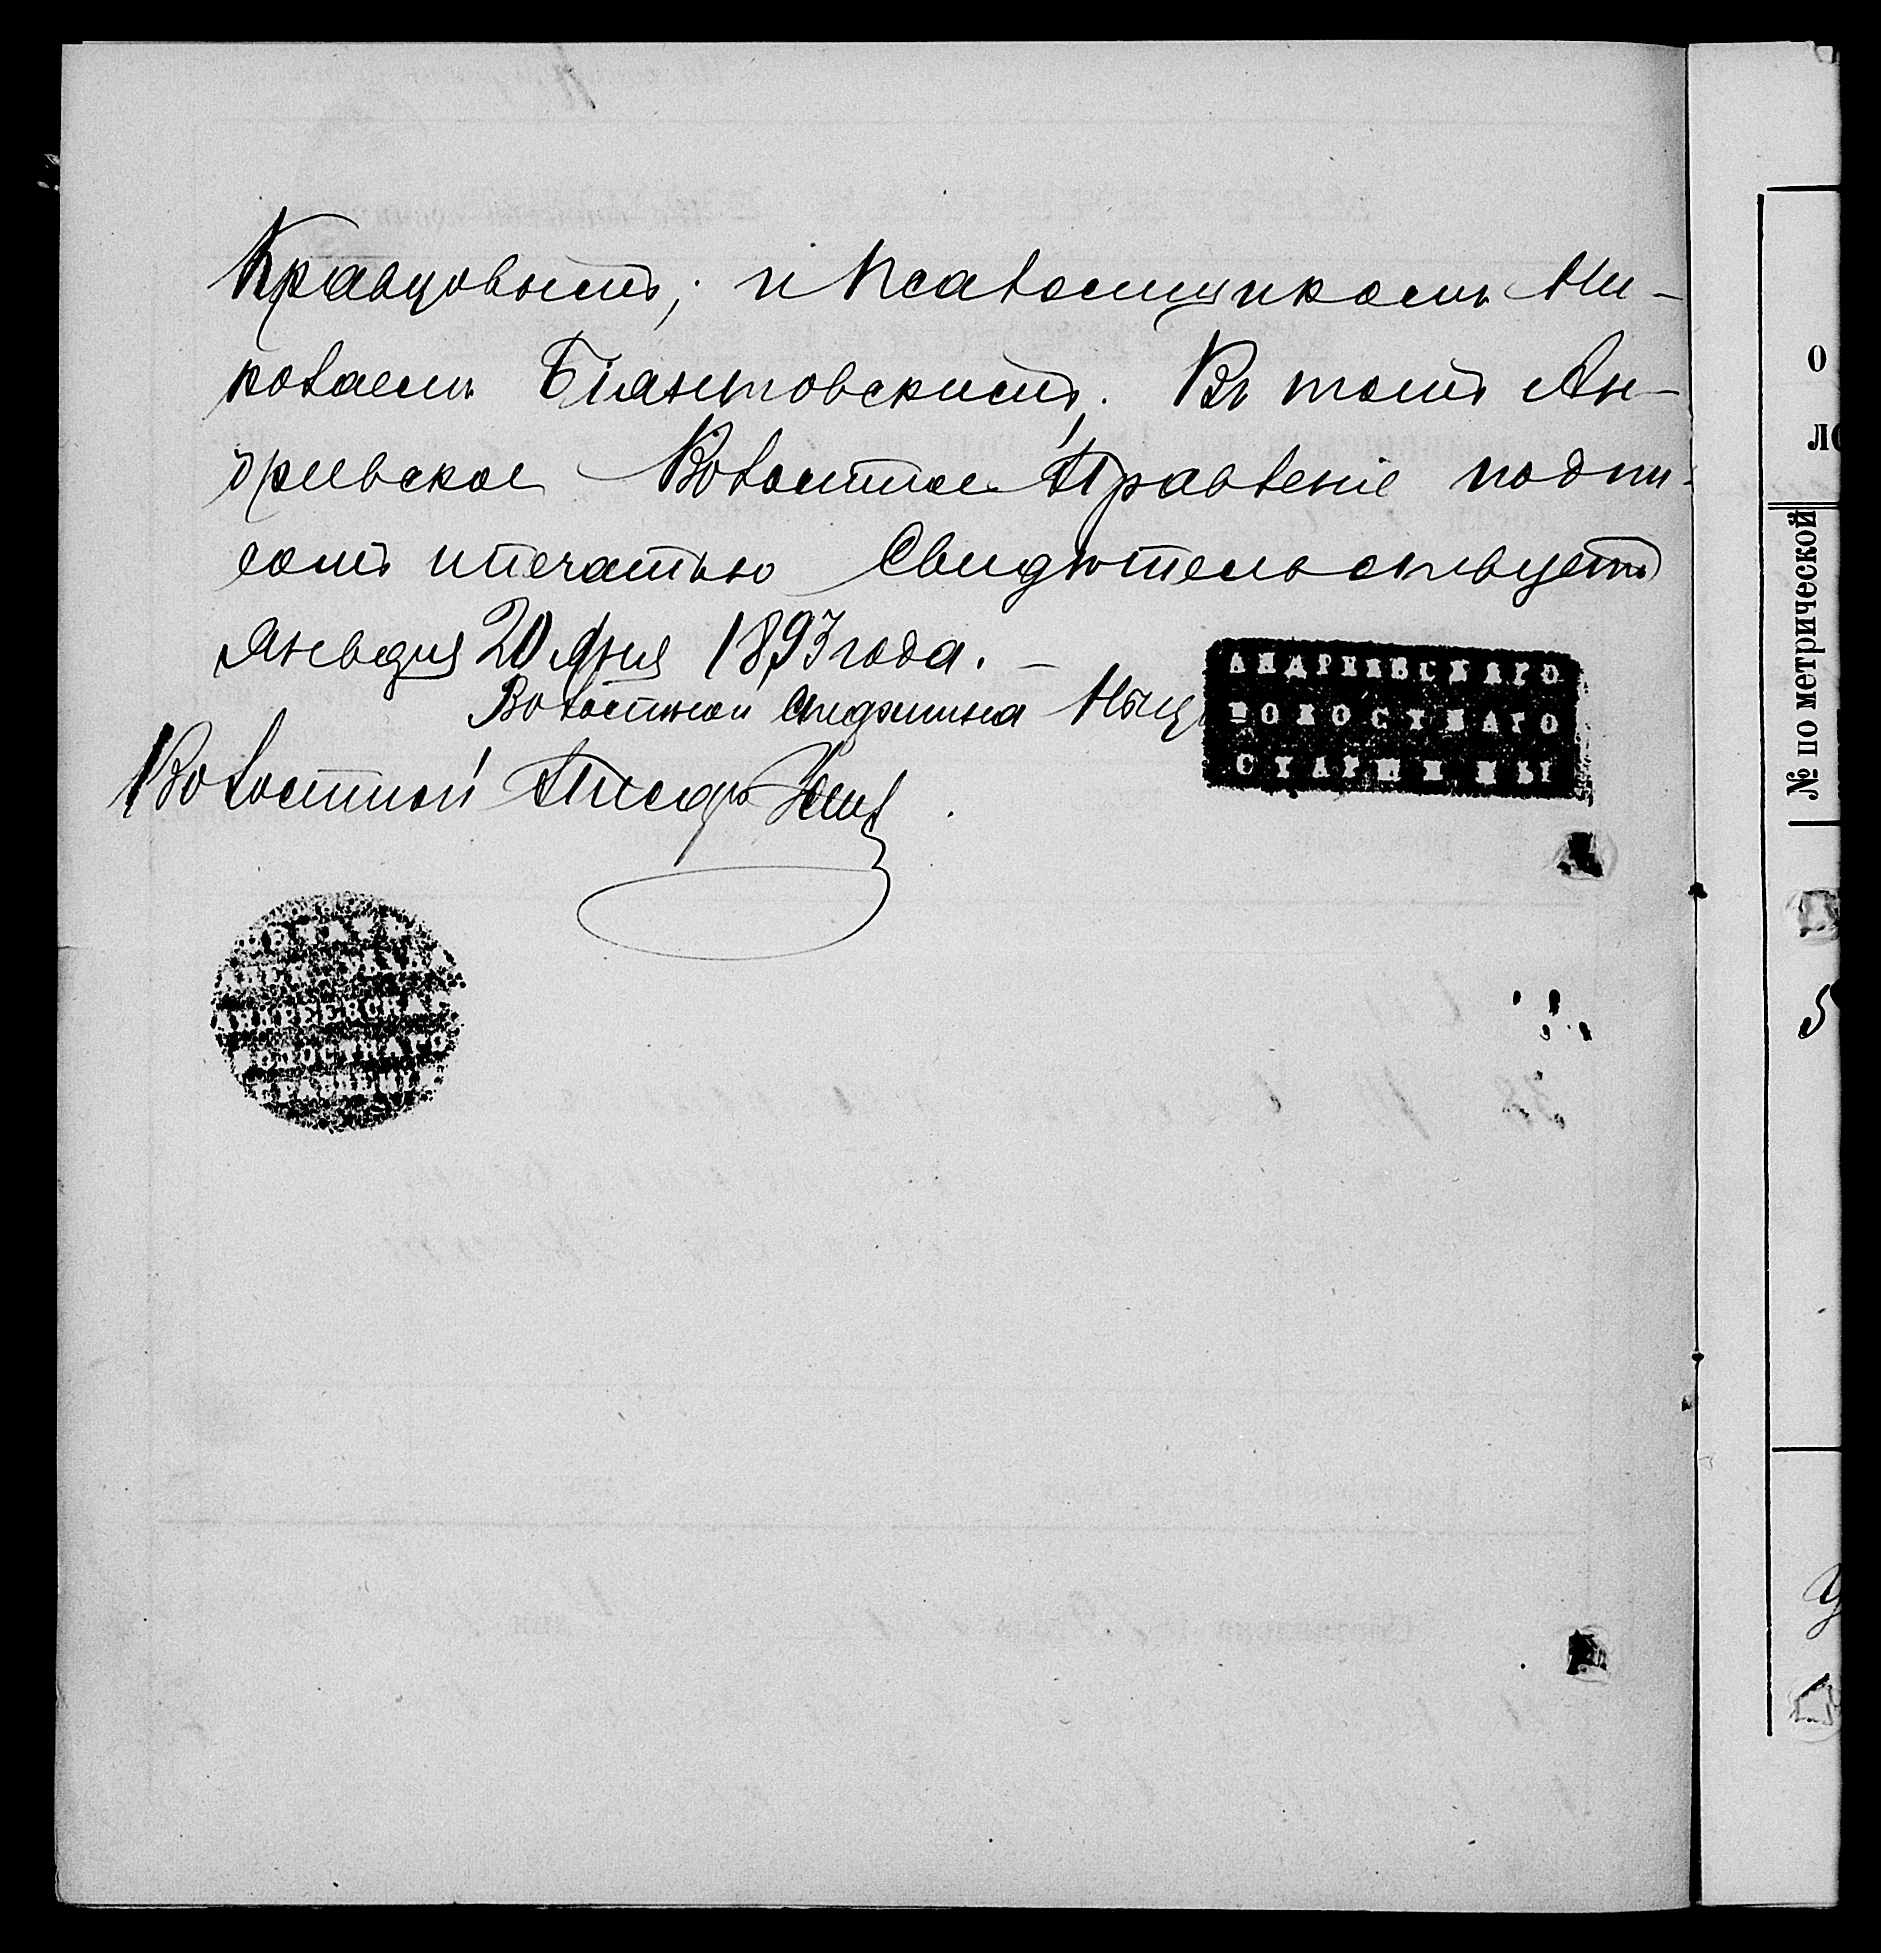 Кравцовымъ; и Псаломщикомъ Ни-
колаемъ Біянтовскимъ. Въ томъ Ан-
дреевское Волостное Правленіе подпи-
сомъ и печатью Свидѣтельствуетъ
Января 20 дня 1893 года. —
Волостной Старшина
АНДРЕЕВСКАГО
ВОЛОСТНАГО
СТАРШИНЫ
Волостной Писарь
ПЕЧАТЬ
АЛЕК. УѢЗДА
АНДРЕЕВСКАГ
ВОЛОСТНАГО
ПРАВЛЕНІЯ
О
ЛО
№ по метрической
5